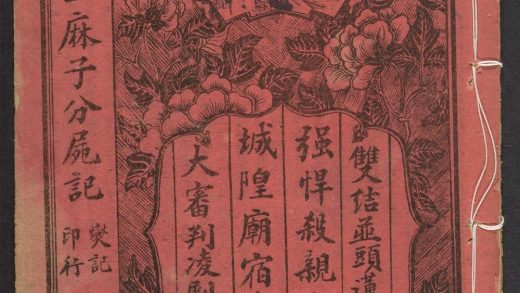 雙結並頭蓮
强悍殺親
城隍廟宿
大審判凌
麻子分屍記
燮記
印行